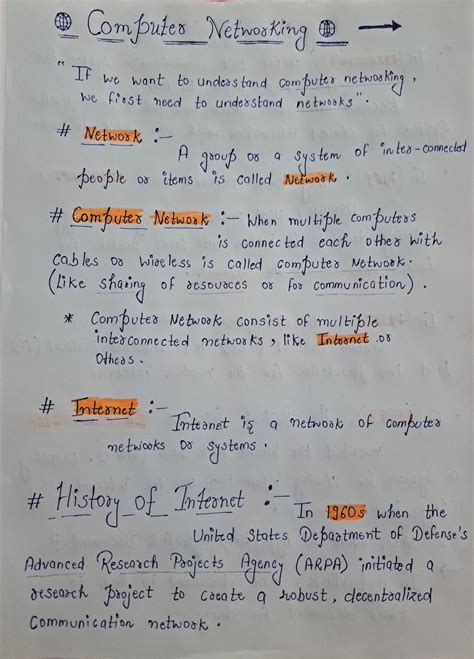 Computer Networking
"If we want to understand computer networking,
we first need to understand networks".
# Network :-
A group or a system of inter-connected
people or items is called Network.
# Computer Network :- When multiple computers
is connected each other with
cables or wireless is called computer Network.
(Like sharing of resources or for communication).
* Computer Network consist of multiple
interconnected networks, like Internet or
Others.
# Internet :-
Internet is a network of computer
networks or systems.
# History of Internet :-
In 1960s when the
United States Department of Defense's
Advanced Research Projects Agency (ARPA) initiated a
research project to create a robust, decentralized
Communication network.